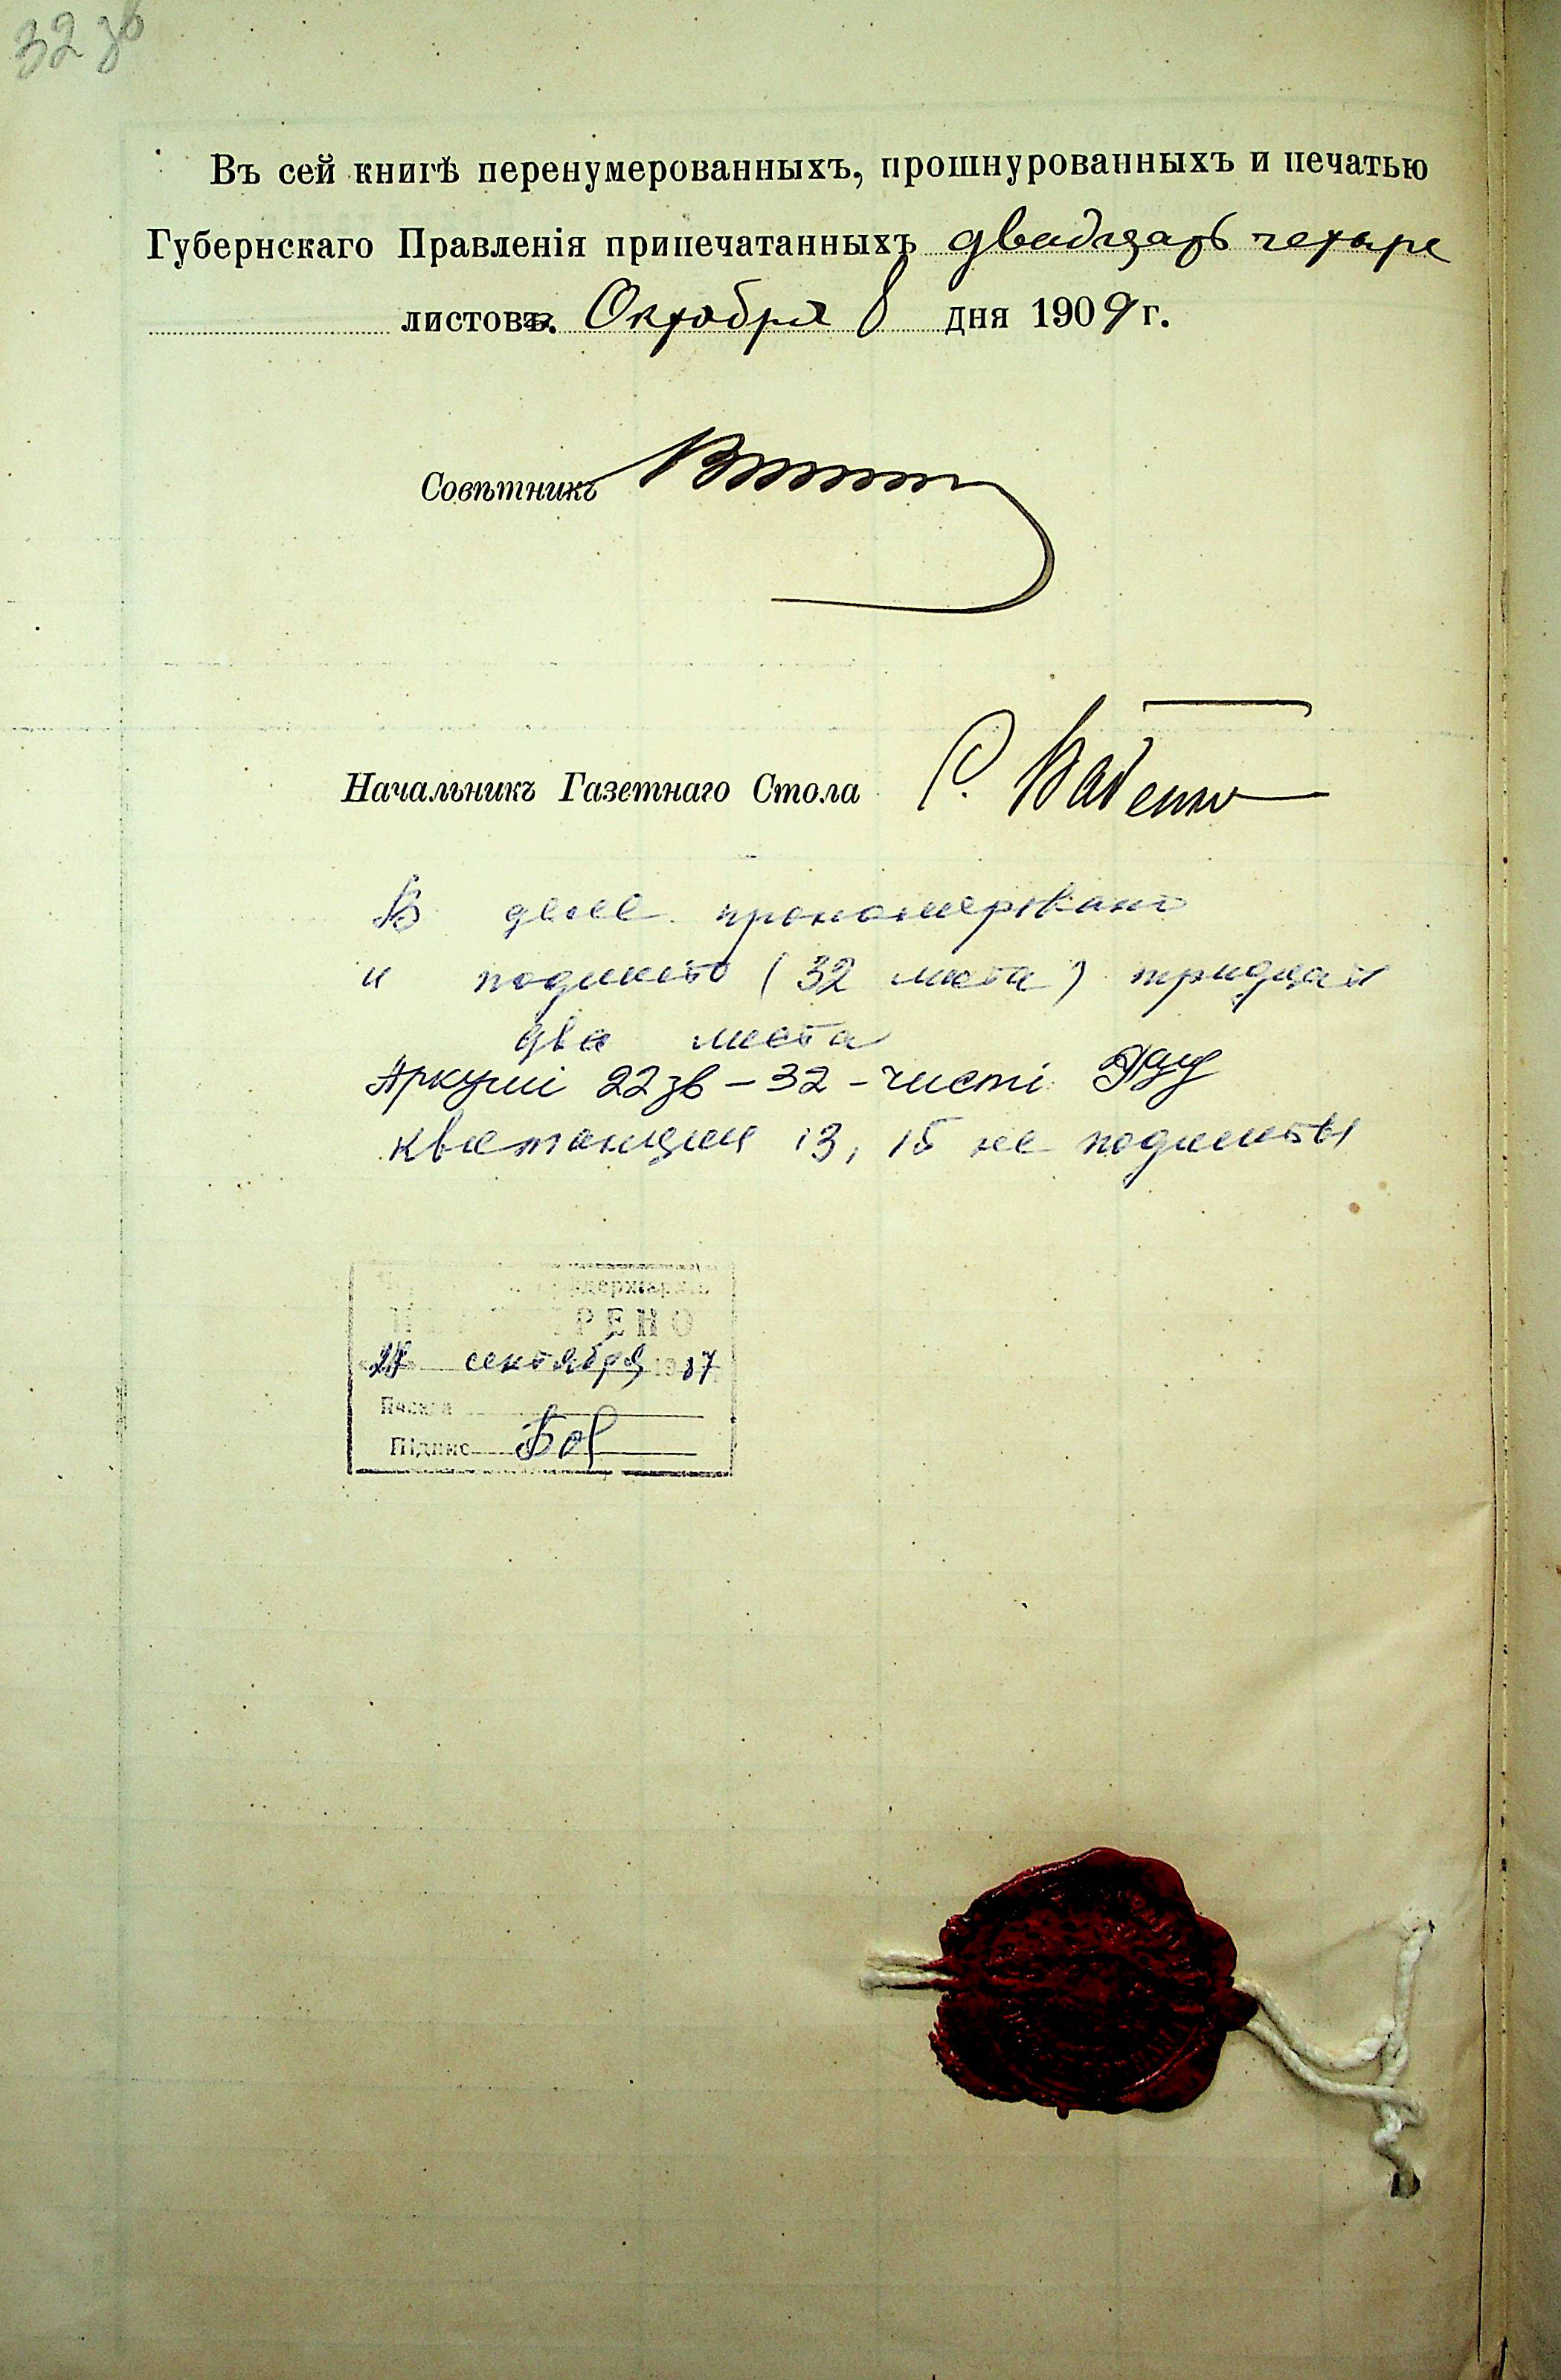 32 зв
Въ сей книгѣ перенумерованныхъ, прошнурованныхъ и печатью
Губернскаго Правленія припечатанныхъ двадцать четыре
листовъ. Октября 8 дня 1909 г.
Совѣтникъ
Начальникъ Газетнаго Стола С.
В деле прономеровано
и подшито (32 листа) тридцать
два листа
Аркуші 22зв – 32 – чисті
квитанции 13, 15 не подшиты
27 сентября 1987
Підпис